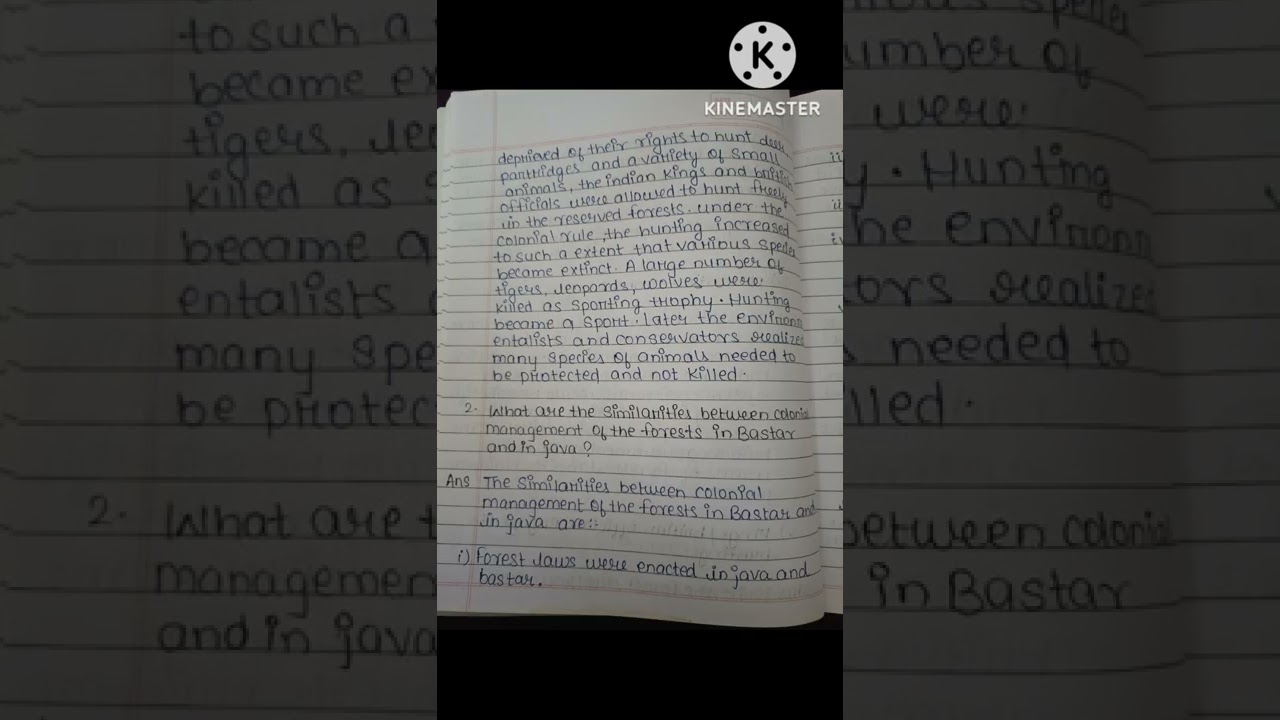 KINEMASTER
deprived of their rights to hunt deer,
partridges and a variety of small
animals, the indian kings and british
officials were allowed to hunt freely
in the reserved forests. under the
colonial rule, the hunting increased
to such a extent that various species
became extinct. A large number of
tigers, leopards, wolves were
killed as sporting trophy. Hunting
became a sport. later the environm
entalists and conservators realized
many species of animals needed to
be protected and not killed.
2. What are the similarities between colonial
management of the forests in Bastar
and in java?
Ans The similarities between colonial
management of the forests in Bastar and
in java are:-
i) forest laws were enacted in java and
bastar.